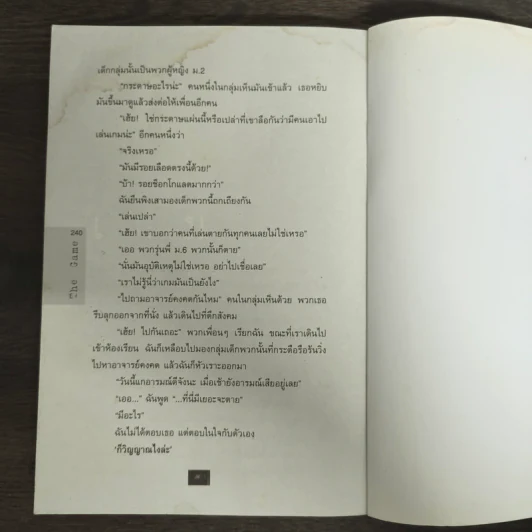 เด็กกลุ่มนั้นเป็นพวกผู้หญิง ม.2
"กระดาษอะไรน่ะ" คนหนึ่งในกลุ่มเห็นมันเข้าแล้ว เธอหยิบ
มันขึ้นมาดูแล้วส่งต่อให้เพื่อนอีกคน
"เฮ้ย! ใช่กระดาษแผ่นนี้หรือเปล่าที่เขาลือกันว่ามีคนเอาไป
เล่นเกมน่ะ" อีกคนหนึ่งว่า
"จริงเหรอ"
"มันมีรอยเลือดตรงนี้ด้วย!"
"บ้า! รอยช็อกโกแลตมากกว่า"
ฉันยืนพิงเสามองเด็กพวกนี้ถกเถียงกัน
"เล่นเปล่า"
"เฮ้ย! เขาบอกว่าคนที่เล่นตายกันทุกคนเลยไม่ใช่เหรอ"
"เออ พวกรุ่นพี่ ม.6 พวกนั้นก็ตาย"
"นั่นมันอุบัติเหตุไม่ใช่เหรอ อย่าไปเชื่อเลย"
"เราไม่รู้นี่ว่าเกมมันเป็นยังไง"
"ไปถามอาจารย์คงคตกันไหม" คนในกลุ่มเห็นด้วย พวกเธอ
รีบลุกออกจากที่นั่ง แล้วเดินไปที่ตึกสังคม
"เฮ้ย! ไปกันเถอะ" พวกเพื่อนๆ เรียกฉัน ขณะที่เราเดินไป
เข้าห้องเรียน ฉันก็เหลือบไปมองกลุ่มเด็กพวกนั้นที่กระตือรือร้นวิ่ง
ไปหาอาจารย์คงคต แล้วฉันก็หัวเราะออกมา
"วันนี้แกอารมณ์ดีจังนะ เมื่อเช้ายังอารมณ์เสียอยู่เลย"
"เออ..." ฉันพูด "...ที่นี่มีเยอะจะตาย"
"มีอะไร"
ฉันไม่ได้ตอบเธอ แต่ตอบในใจกับตัวเอง
'ก็วิญญาณไงล่ะ'
240
The Game